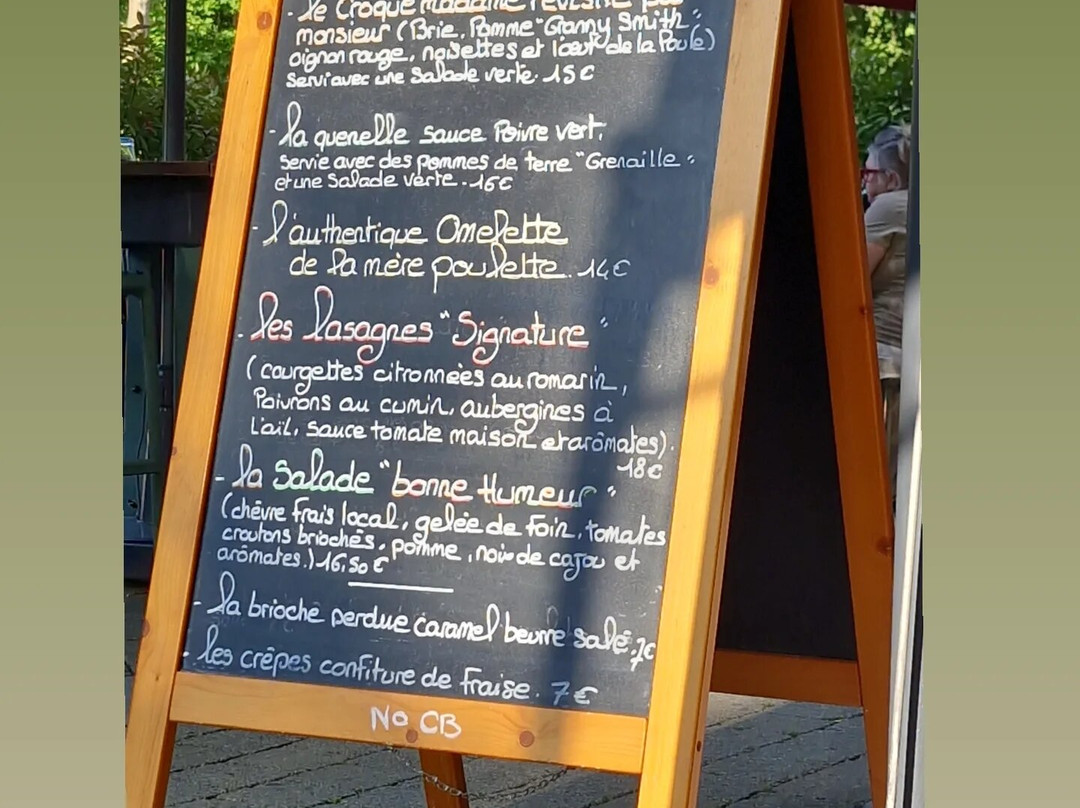 - le Croque madame revisité
monsieur (Brie, Pomme "Granny Smith",
oignon rouge, noisettes et l'œuf de la Poule)
Servi avec une Salade verte. 15€
- la quenelle sauce Poivre vert,
Servie avec des pommes de terre "Grenaille"
et une Salade verte. 16€
- l'authentique Omelette
de la mère poulette. 14€
- les lasagnes "Signature"
(courgettes citronnées au romarin,
Poivrons au cumin, aubergines à
l'ail, sauce tomate maison et arômates).
18€
- la Salade "bonne Humeur"
(chèvre frais local, gelée de Foin, tomates
croutons briochés, pomme, noix de cajou et
arômates.) 16,50€
- la brioche perdue caramel beurre salé. 7€
- les crêpes confiture de fraise. 7€
No CB